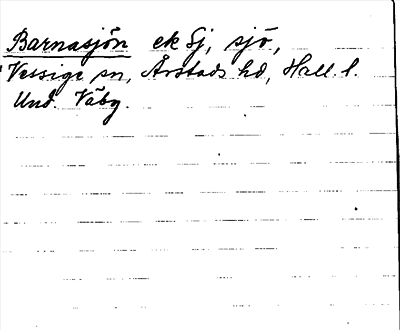 Barnasjön ek Sj, sjö,
Vessige sn, Årstads hd, Hall. l.
Und. Väby.